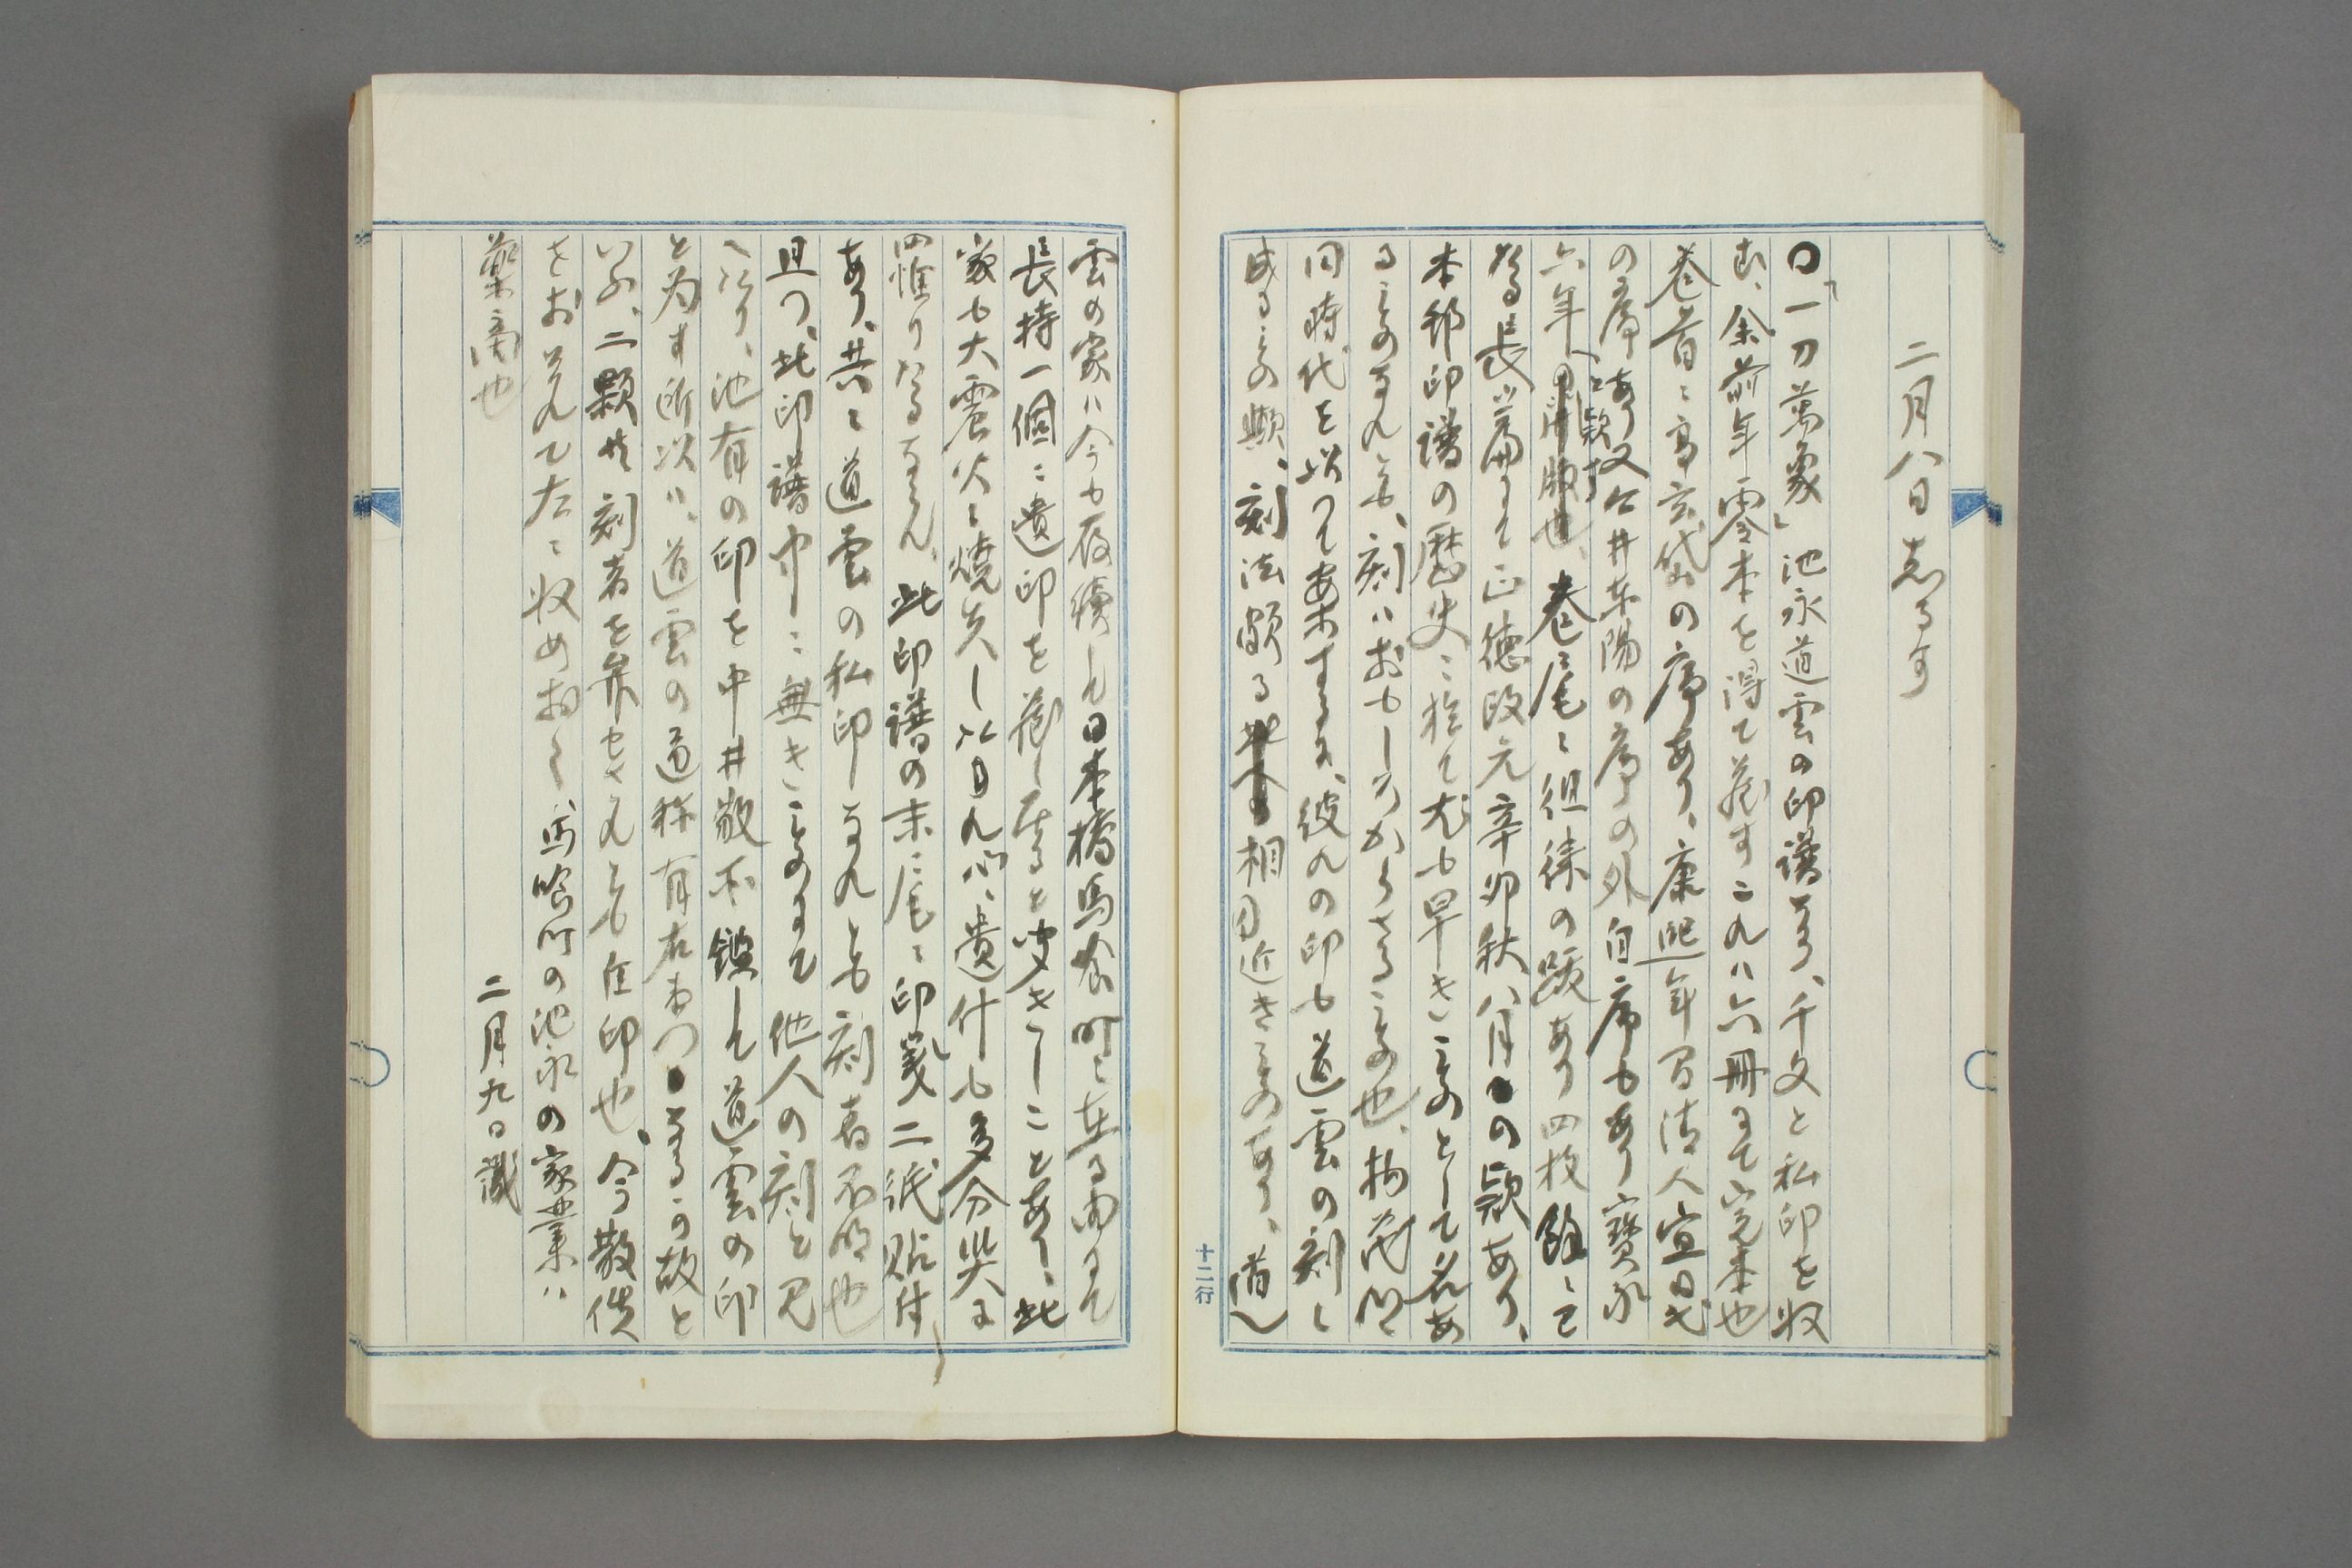 二月八日志るす
〇「一刀萬象」池永道雲の印譜なり、千文と私印を収
む、余前年零本を得て蔵すこれハ六冊にて完本也
巻首に高玄岱の序あり、康熙年間清人宣日
の序あり又今井東陽の序の外自序もあり寶永
と款す
六年の開版也、巻尾に徂徠の跋あり四枚餘にて
なる長篇にて正徳改元辛卯秋八月の款あり、
本邦印譜の歴史に於て尤も早きものとして名あ
るものなれども、刻ハおもしろからさるもの也、
同時代を以つて案するに、彼れの印も道雲の刻し
成るもの歟、刻法頗る相近きものあり、道
雲の家ハ今も存續して日本橋馬喰町に在る由にて
長持一個に遺印を蔵し居ると聞きしことあり、此
家も大震火に燒失し以れバ、遺什も多分燬失に
四惟りなるならん、此印譜の末尾に印箋二紙貼付
あり、共に道雲の私印なれとも刻者不明也
且つ、此印譜中に無きものにて他人の刻と見
へたり、池有の印を中井敬所鑑して道雲の印
と為す所以ハ、道雲の通称有右衛門なるの故と
いふ、二顆共刻者を弁せされとも佳印也、今散佚
をおそれて左に収めおく、馬喰町の池永の家業ハ
薬商也
二月九日識
十二行